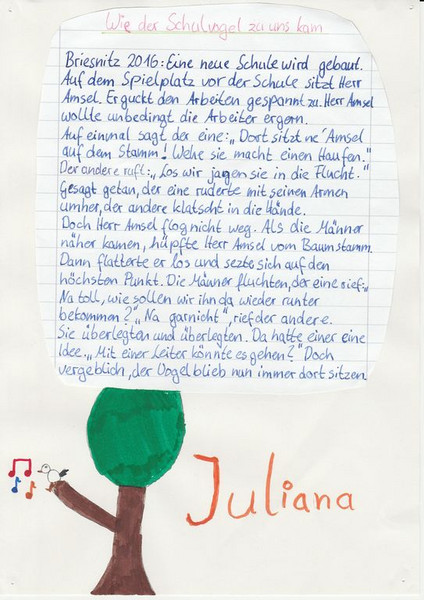 Wie der Schulvogel zu uns kam
Briesnitz 2016: Eine neue Schule wird gebaut.
Auf dem Spielplatz vor der Schule sitzt Herr
Amsel. Er guckt den Arbeiten gespannt zu. Herr Amsel
wollte unbedingt die Arbeiter ergern.
Auf einmal sagt der eine: „Dort sitzt ne' Amsel
auf dem Stamm! Wehe sie macht einen Haufen."
Der andere ruft: „Los wir jagen sie in die Flucht."
Gesagt getan, der eine ruderte mit seinen Armen
umher, der andere klatscht in die Hände.
Doch Herr Amsel flog nicht weg. Als die Männer
näher kamen, hüpfte Herr Amsel vom Baumstamm.
Dann flatterte er los und sezte sich auf den
höchsten Punkt. Die Männer fluchten, der eine rief: „
Na toll, wie sollen wir ihn da wieder runter
bekommen?" „Na garnicht", rief der andere.
Sie überlegten und überlegten. Da hatte einer eine
Idee. „Mit einer Leiter könnte es gehen?" Doch
vergeblich, der Vogel blieb nun immer dort sitzen.
Juliana